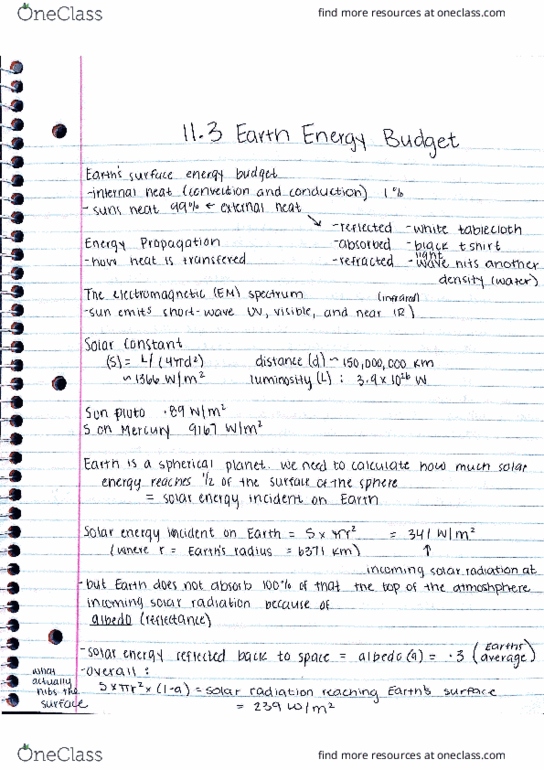 OneClass
find more resources at oneclass.com
11.3 Earth Energy Budget
Earth's surface energy budget
-internal heat (convection and conduction) 1%
- suns heat 99% ← external heat
-reflected -white tablecloth
Energy Propagation -absorbed -black t shirt
-how heat is transferred -refracted -light wave hits another
density (water)
The electromagnetic (EM) spectrum (infrared)
-sun emits short-wave UV, visible, and near IR)
Solar Constant
(S) = L/(4πd²) distance (d) ~ 150,000,000 km
~1366 W/m² luminosity (L) : 3.9 x 10²⁶ W
S on pluto .89 W/m²
S on Mercury 9167 W/m²
Earth is a spherical planet. we need to calculate how much solar
energy reaches 1/2 of the surface of the sphere
= solar energy incident on Earth
Solar energy incident on Earth = S x πr² = 341 W/m²
(where r = Earth's radius = 6371 km) ↑
incoming solar radiation at
-but Earth does not absorb 100% of that the top of the atmoshphere
incoming solar radiation because of
albedo (reflectance)
-solar energy reflected back to space = albedo (a) = .3 (Earth's average)
-overall :
what actually hits the surface
S x πr² x (1-a) = solar radiation reaching Earth's surface
= 239 W/m²
OneClass
find more resources at oneclass.com